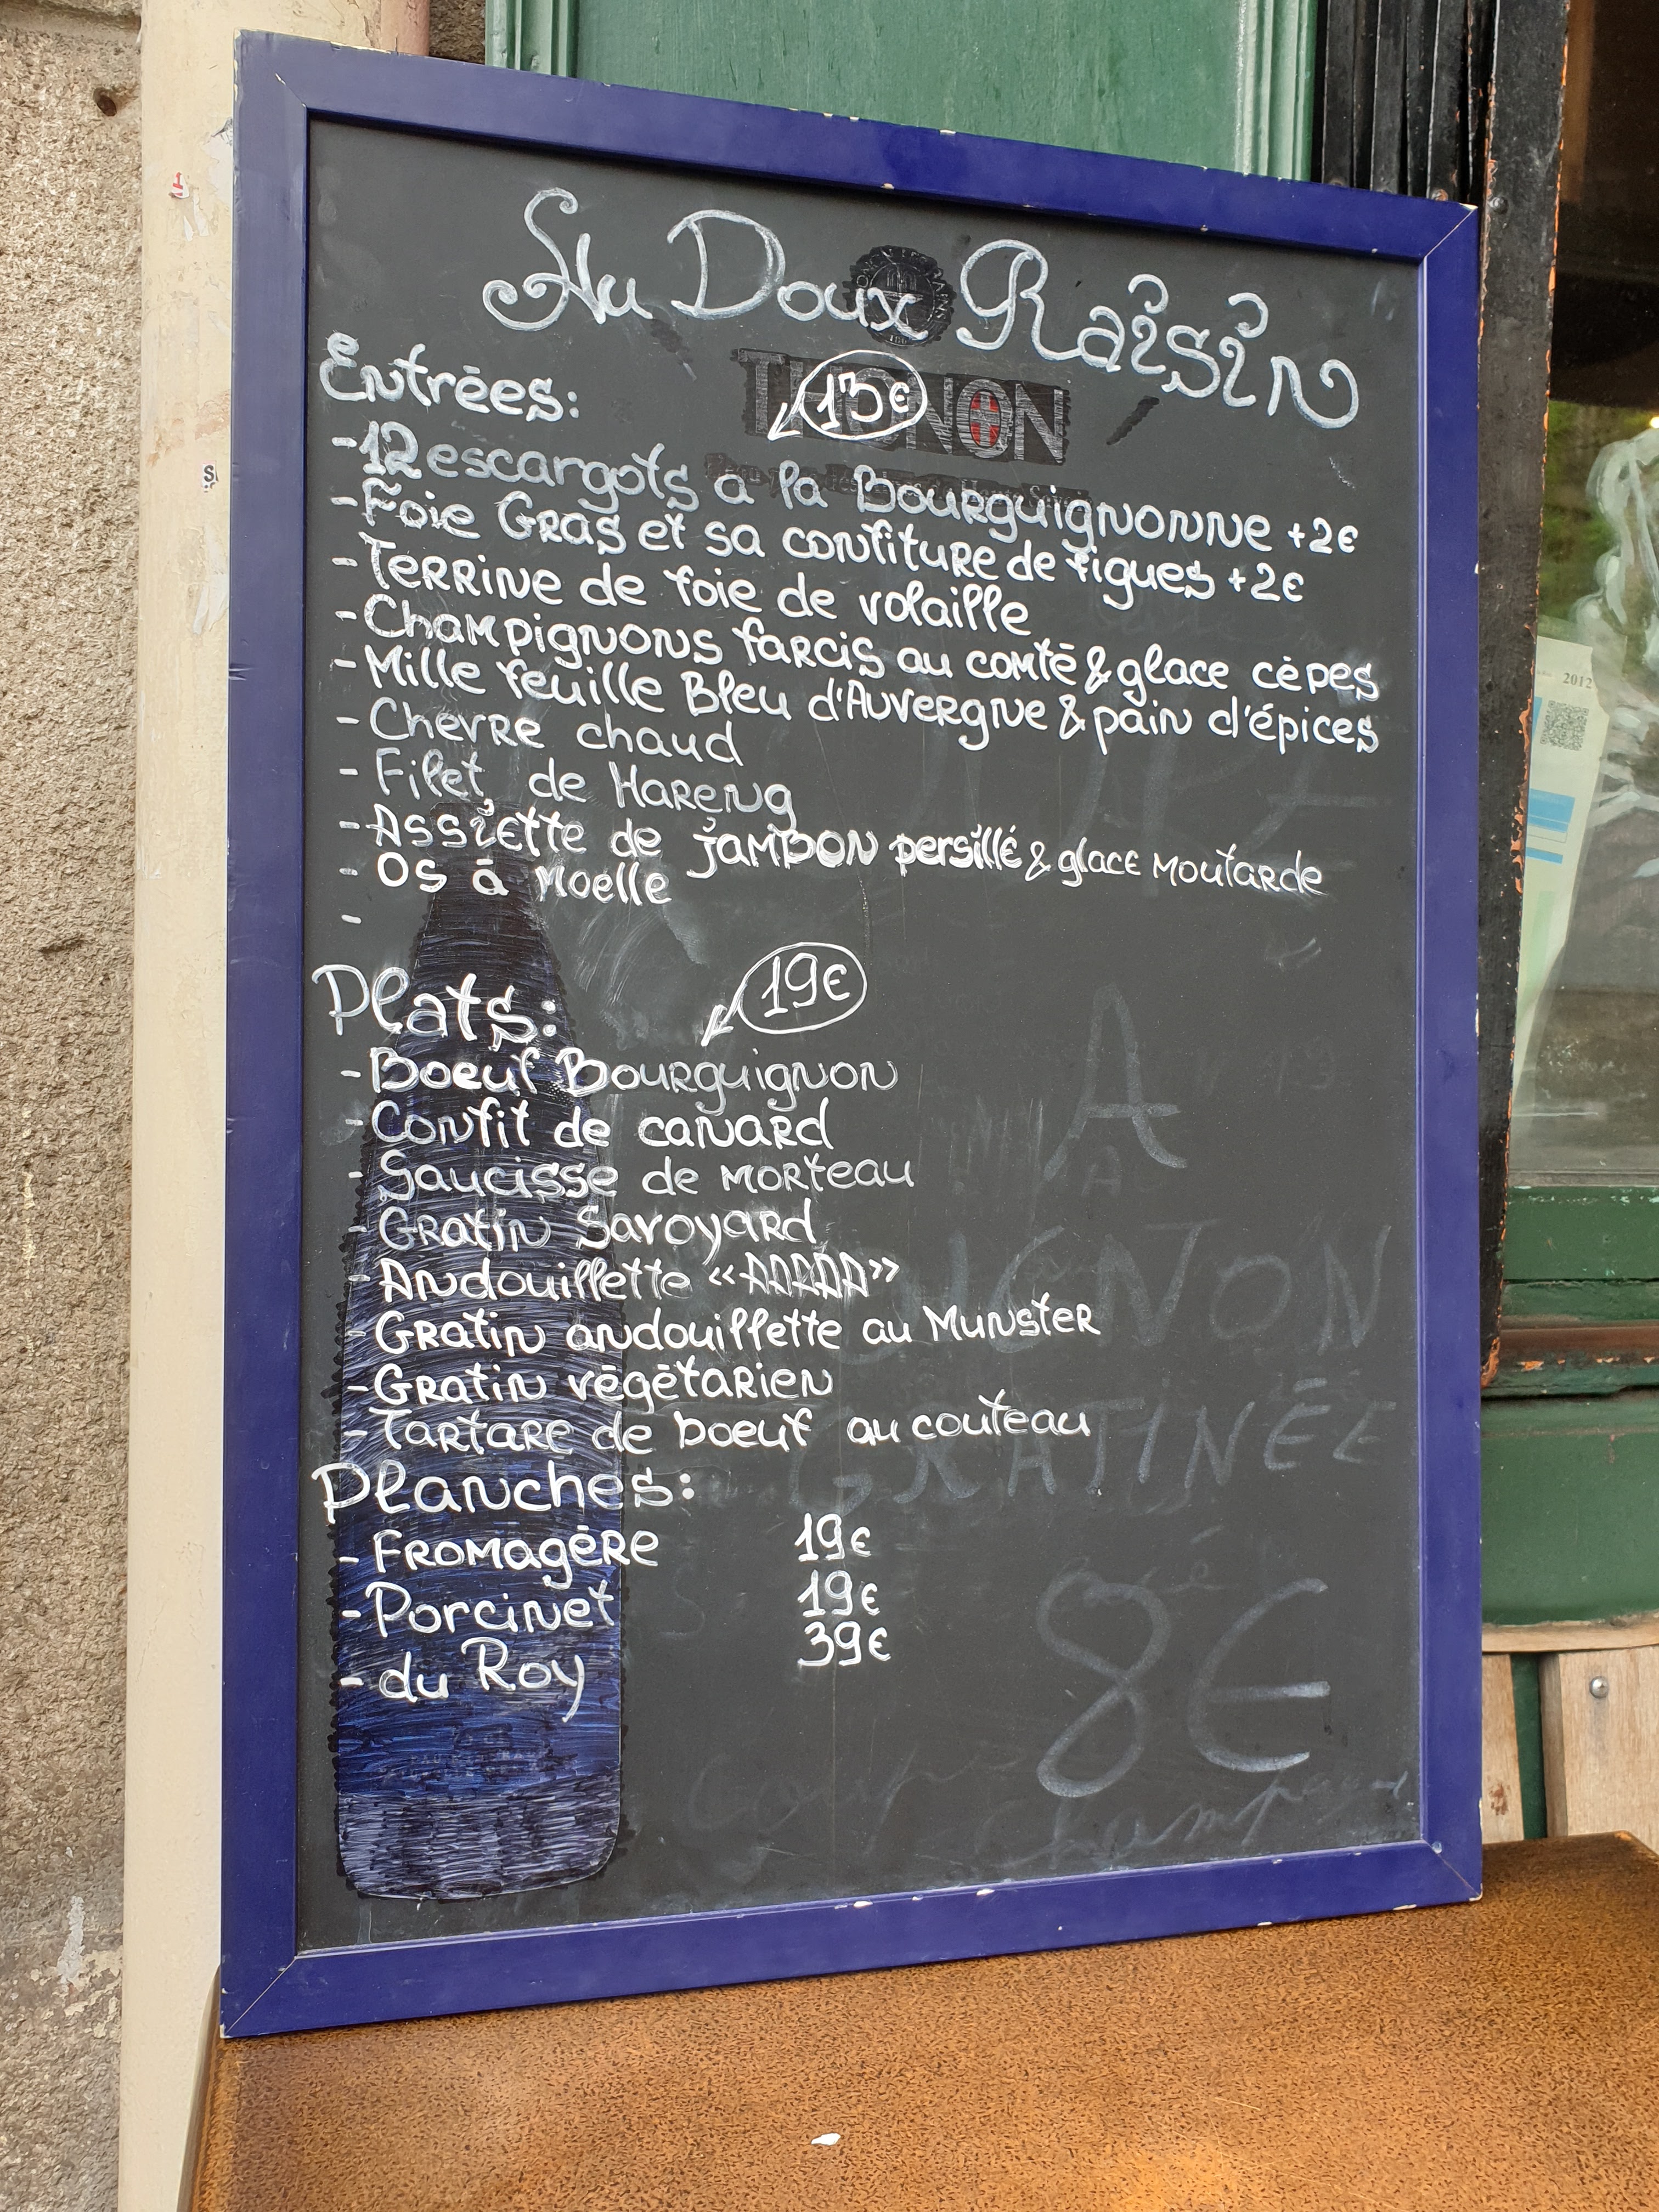 Au Doux Raisin
Entrées: 13€
-12 escargots a la Bourguignonne +2€
-Foie Gras et sa confiture de figues +2€
-Terrine de foie de volaille
-Champignons farcis au comté & glace cèpes
-Mille feuille Bleu d'Auvergne & pain d'épices
-Chevre chaud
-Filet de Hareng
-Assiette de jambon persillé & glace moutarde
-Os à Moelle
-
Plats: 19€
-Boeuf Bourguignon
-Confit de canard
-Saucisse de morteau
-Gratin Savoyard
-Andouillette «AAAAA»
-Gratin andouillette au Munster
-Gratin végétarien
-Tartare de boeuf au couteau
Planches:
-Fromagère 19€
-Porcinet 19€
-du Roy 39€
THONON
A
GRATINÉE
8€
2012